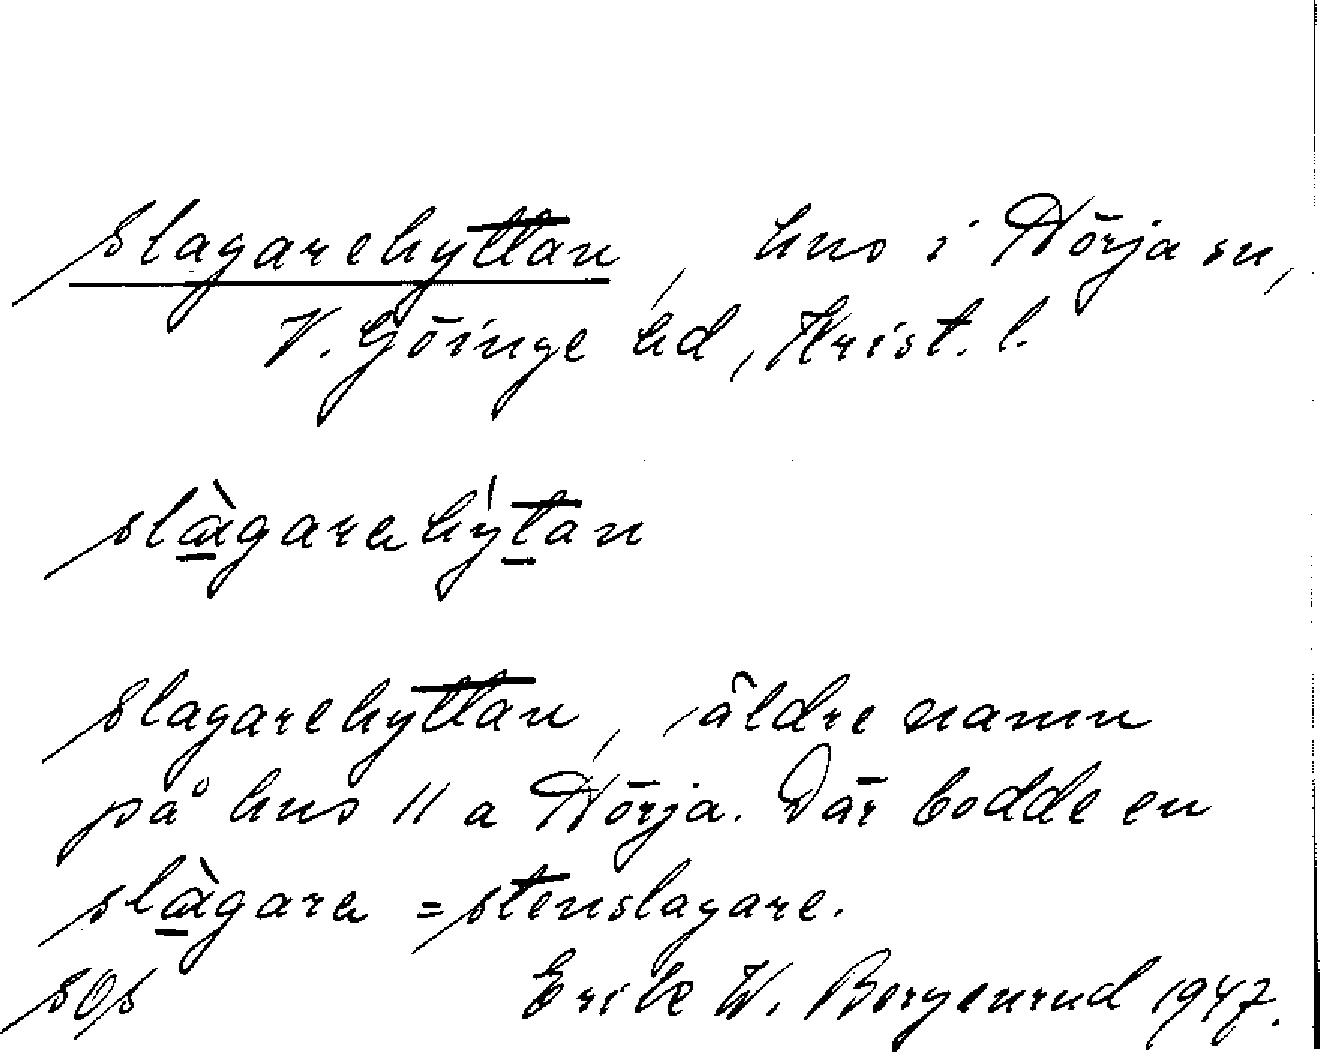 Slagarehyttan, hus i Nörja sn,
V. Göinge hd, Krist. l.
slàgarahýtan
Slagarehyttan, äldre namn
på hus 11 a Nörja. Där bodde en
slàgara = stenslagare.
SOs Erik W. Borgenrud 1947.